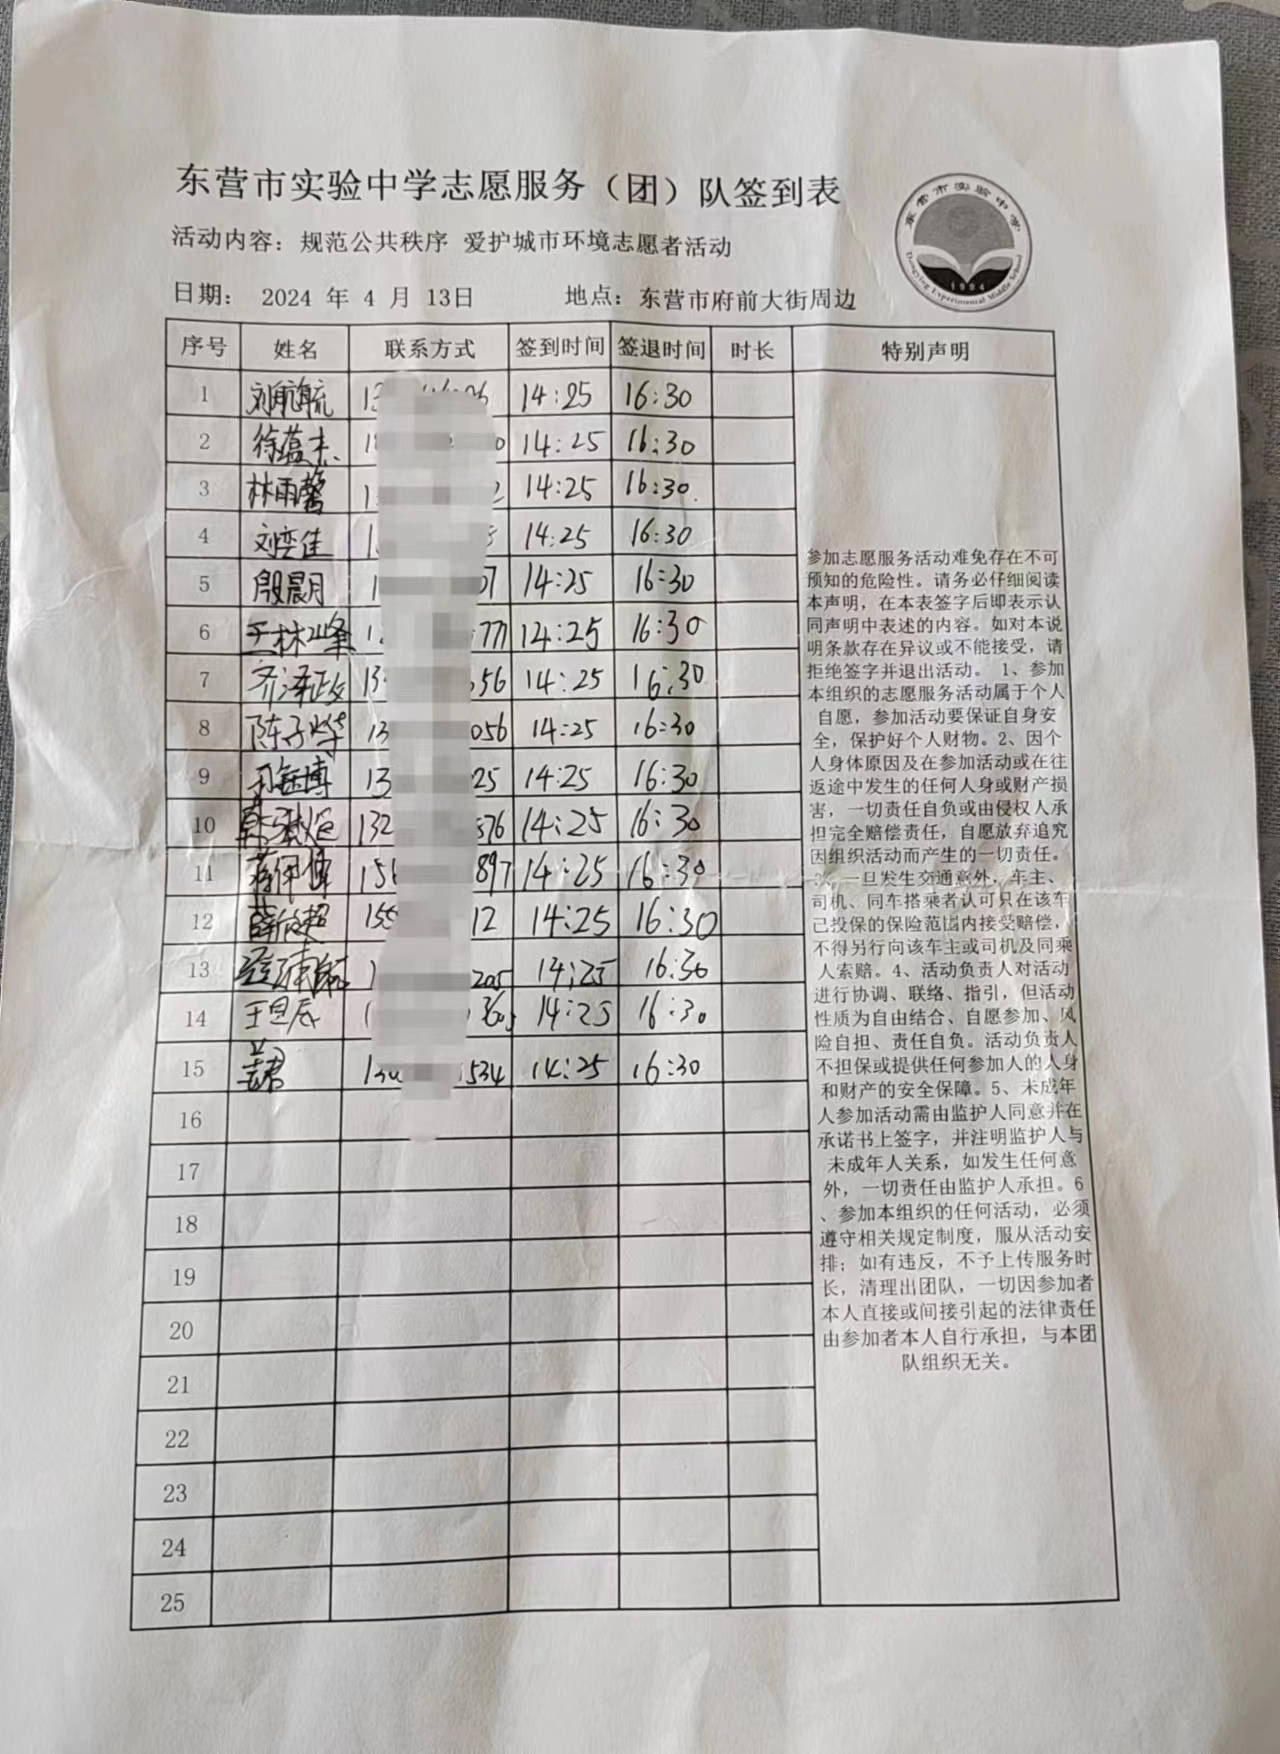 东营市实验中学志愿服务（团）队签到表
东营市实验中学
Dongying Experimental Middle School
1994
活动内容：规范公共秩序 爱护城市环境志愿者活动
日期： 2024 年 4 月 13日 地点：东营市府前大街周边
序号 姓名 联系方式 签到时间 签退时间 时长 特别声明
1 刘航毓 13 14:25 16:30
2 徐蕴杰 14:25 16:30
3 林雨馨 14:25 16:30
4 刘奕佳 14:25 16:30
5 殷晨月 07 14:25 16:30
6 王林峰 777 14:25 16:30
7 齐泽政 13 556 14:25 16:30
8 陈子烨 13 056 14:25 16:30
9 博 13 25 14:25 16:30
10 132 576 14:25 16:30
11 蒋伊博 156 897 14:25 16:30
12 薛欣超 155 12 14:25 16:30
13 205 14:25 16:30
14 王昱辰 14:25 16:30
15 130 534 14:25 16:30
16
17
18
19
20
21
22
23
24
25
参加志愿服务活动难免存在不可
预知的危险性。请务必仔细阅读
本声明，在本表签字后即表示认
同声明中表述的内容。如对本说
明条款存在异议或不能接受，请
拒绝签字并退出活动。 1、参加
本组织的志愿服务活动属于个人
自愿，参加活动要保证自身安
全，保护好个人财物。2、因个
人身体原因及在参加活动或在往
返途中发生的任何人身或财产损
害，一切责任自负或由侵权人承
担完全赔偿责任，自愿放弃追究
因组织活动而产生的一切责任。
3、一旦发生交通意外，车主、
司机、同车搭乘者认可只在该车
已投保的保险范围内接受赔偿，
不得另行向该车主或司机及同乘
人索赔。4、活动负责人对活动
进行协调、联络、指引，但活动
性质为自由结合、自愿参加、风
险自担、责任自负。活动负责人
不担保或提供任何参加人的人身
和财产的安全保障。5、未成年
人参加活动需由监护人同意并在
承诺书上签字，并注明监护人与
未成年人关系，如发生任何意
外，一切责任由监护人承担。6
、参加本组织的任何活动，必须
遵守相关规定制度，服从活动安
排；如有违反，不予上传服务时
长，清理出团队，一切因参加者
本人直接或间接引起的法律责任
由参加者本人自行承担，与本团
队组织无关。